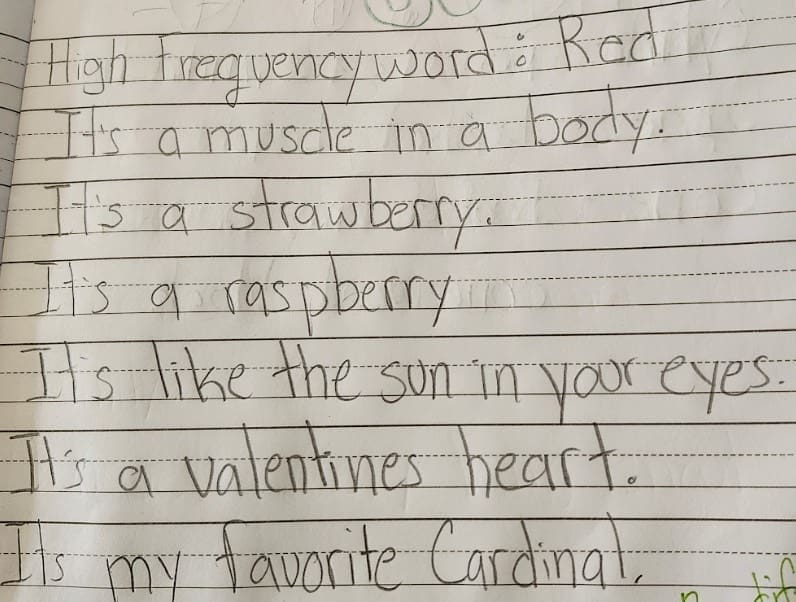 High frequency word: Red
It's a muscle in a body.
It's a strawberry.
It's a raspberry
It's like the sun in your eyes.
It's a valentines heart.
It's my favorite Cardinal.